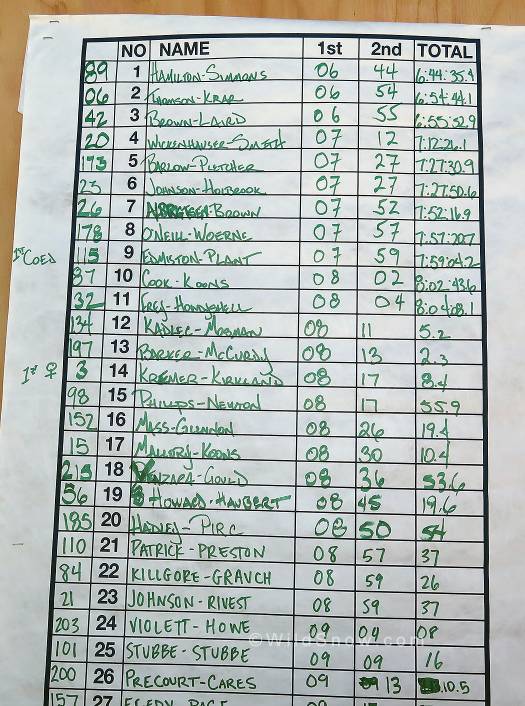 NO NAME 1st 2nd TOTAL
89 1 HAMILTON-SIMMONS 06 44 6:44:35.4
06 2 THOMSON-KRAR 06 54 6:54:44.1
42 3 BROWN-LAIRD 06 55 6:55:52.9
20 4 WICKENHAUSER-SMITH 07 12 7:12:26.1
173 5 BARLOW-PLETCHER 07 27 7:27:30.9
23 6 JOHNSON-HOLBROOK 07 27 7:27:50.6
26 7 BROWN 07 52 7:52:16.9
178 8 O'NEILL-WOERNE 07 57 7:57:20.7
1st COED 115 9 EDMISTON-PLANT 07 59 7:59:04.2
87 10 COOK-KOONS 08 02 8:02:43.6
32 11 FREY-HONNYSHELL 08 04 8:04:08.1
134 12 KADLEC-MOSMAN 08 11 5.2
197 13 BARKER-MCCURDY 08 13 2.3
1st ♀ 3 14 KREMER-KIRKLAND 08 17 8.4
98 15 PHILLIPS-NEWTON 08 17 55.9
152 16 MASS-GLENNON 08 26 19.4
15 17 MALLORY-KOONS 08 30 10.4
215 18 GOULD 08 36 53.6
56 19 HOWARD-HAUBERT 08 45 19.6
185 20 HADLEY-PIRC 08 50 54
110 21 PATRICK-PRESTON 08 57 37
84 22 KILLGORE-GRAUCH 08 59 26
21 23 JOHNSON-RIVEST 08 59 37
203 24 VIOLETT-HOWE 09 04 08
© WildSnow.com
101 25 STUBBE-STUBBE 09 09 16
200 26 PRECOURT-CARES 09 13 10.5
157 27